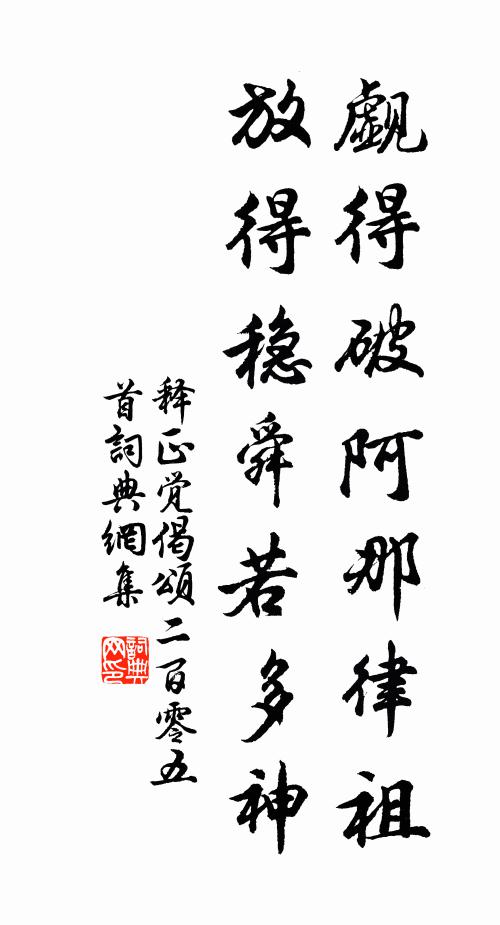 觑得破阿那律祖
放得稳舜若多神
释正觉偈颂二百零五
首詞典網集
詞典
网印